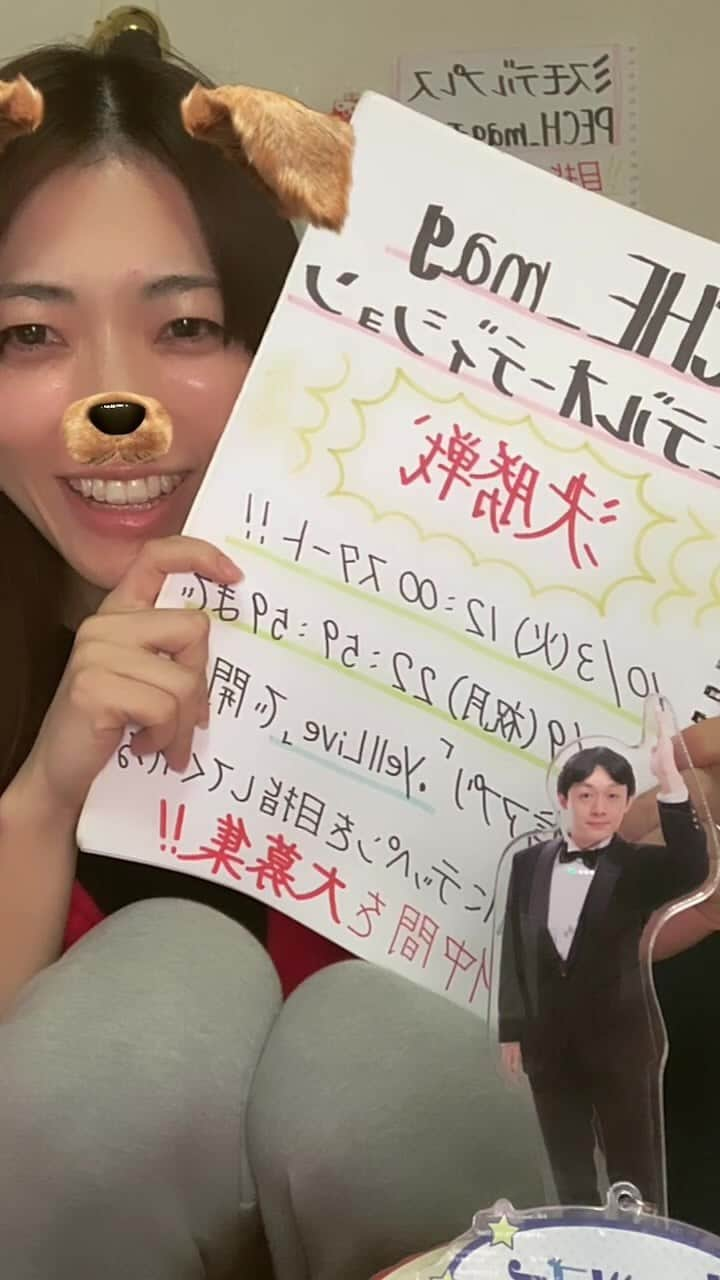 ミスモデルプレス
PECH_mag
目指
CHE_mag
モデルオーディション
決勝戦
10/3(火)12:00スタート!!
/9(祝月)22:59:59まで
アプリ「.yellLive」で開
にテッペンを目指してくれる
仲間を大募集!!